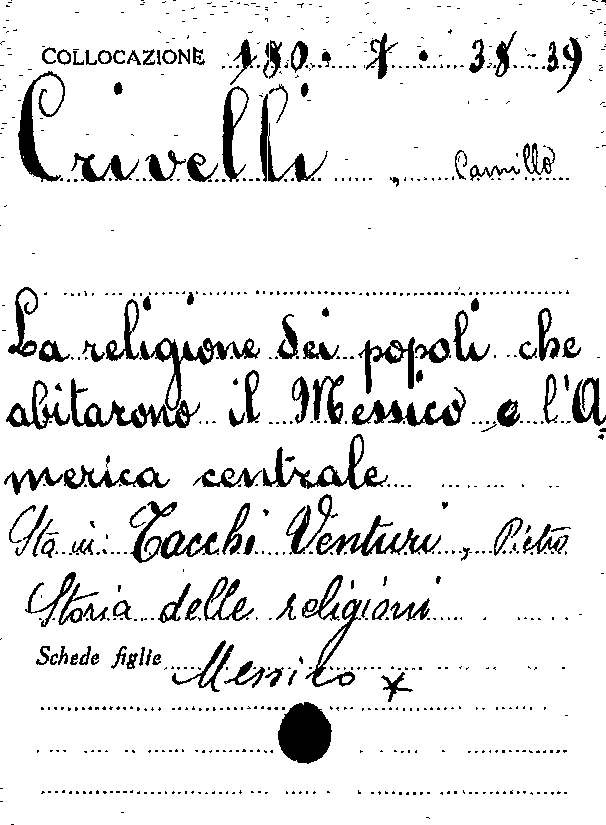 COLLOCAZIONE 180. 7. 38-39
Crivelli, Camillo
La religione dei popoli che
abitarono il Messico e l'A=
merica centrale
Sta in: Tacchi Venturi, Pietro
Storia delle religioni
Schede figlie Messico *